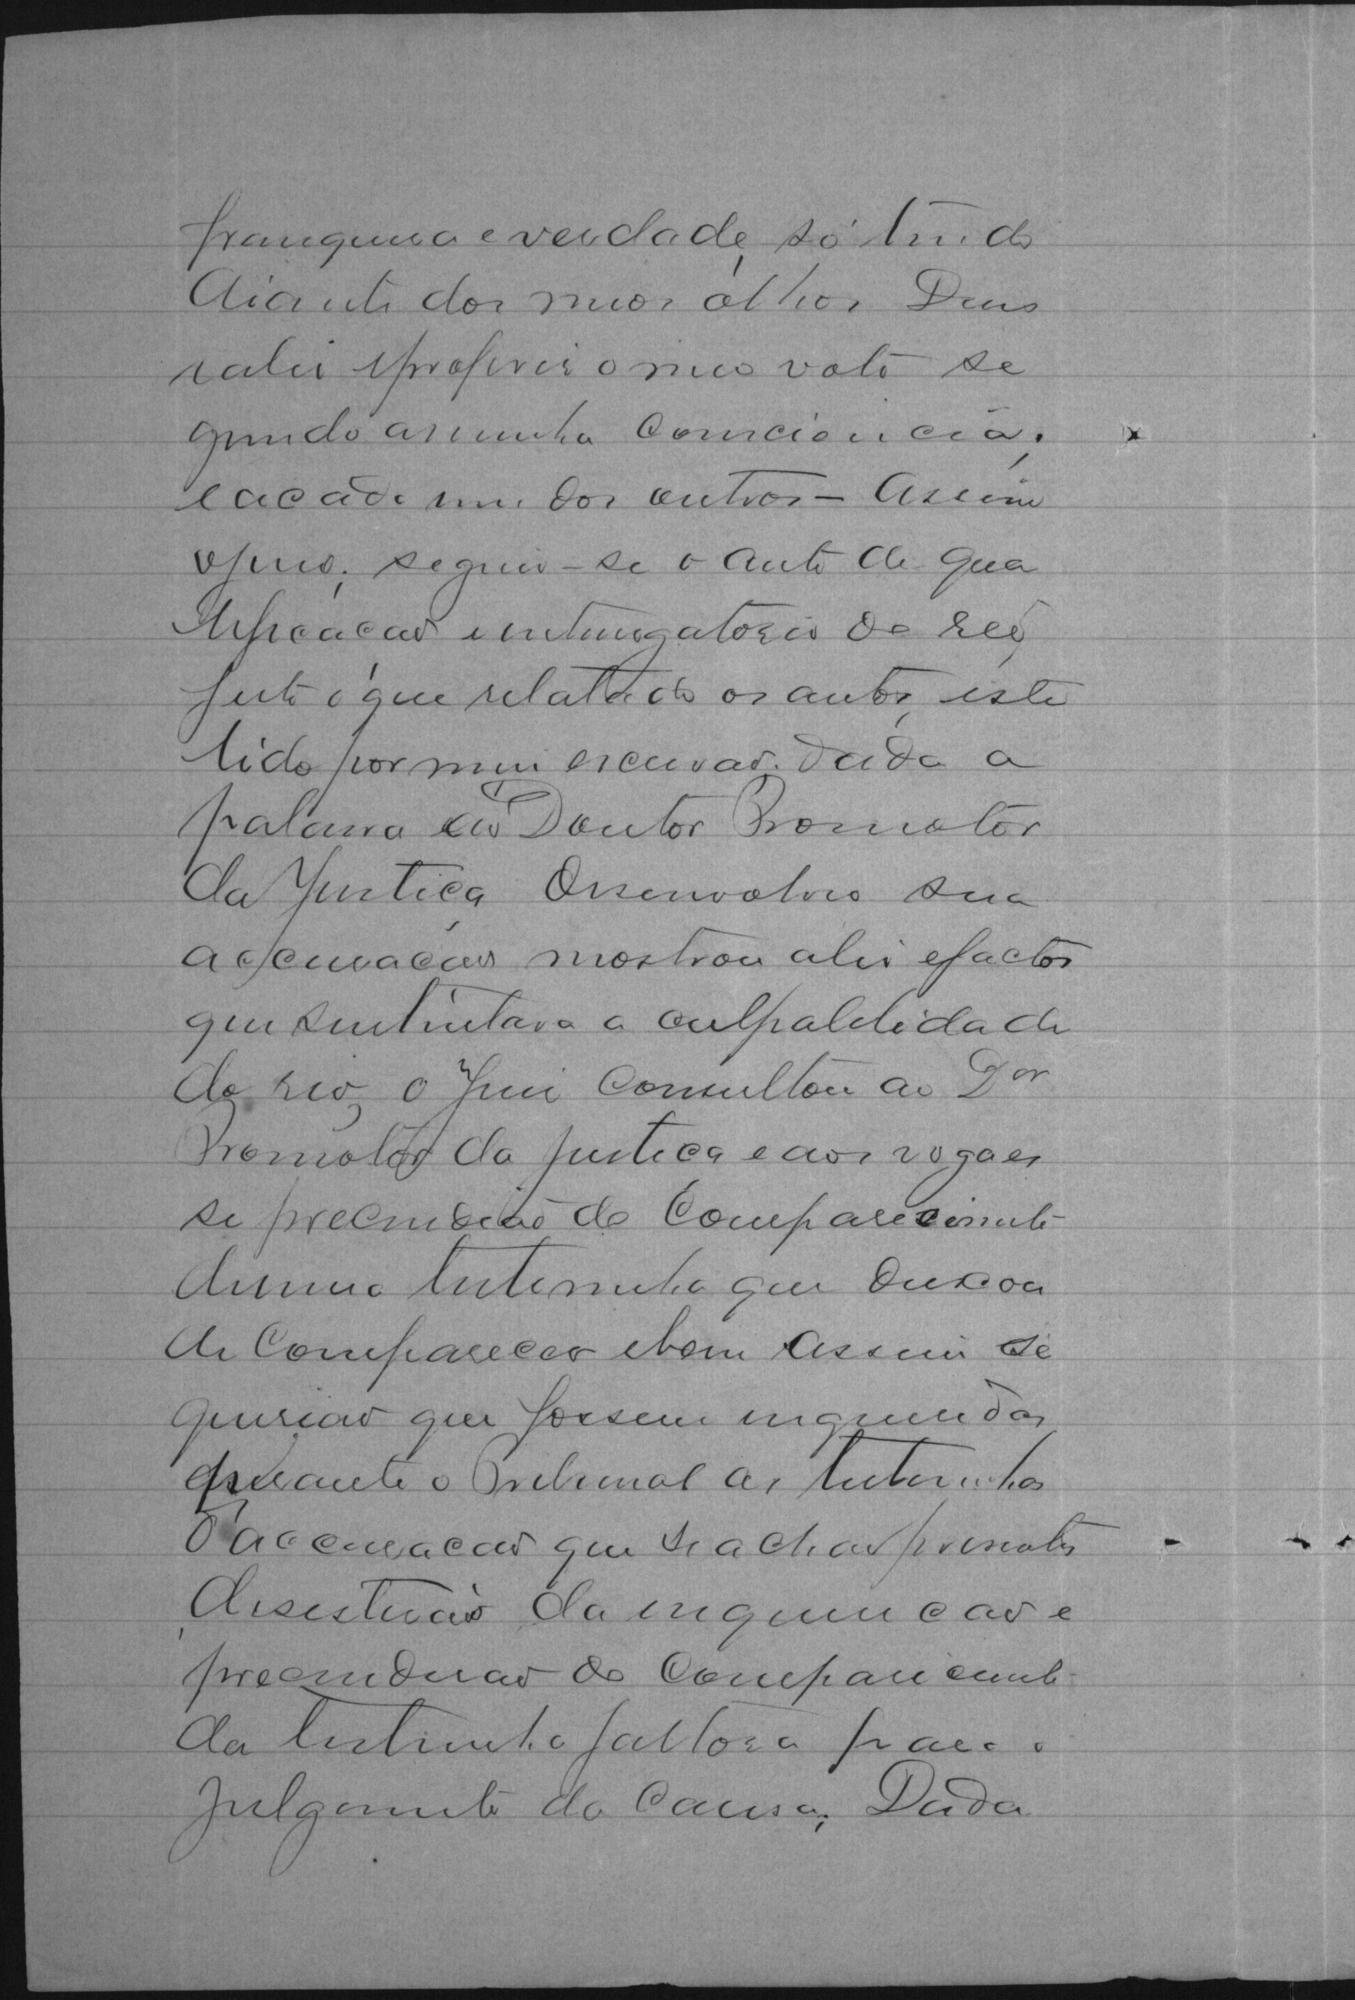 franquesa e verdade, só tendo
diante dos meus ólhos Deus
a lei e proferir o meu voto se
gundo a minha consciencia;
e a cada um dos outros – Assim
o juro; seguio-se o auto de qua
lificacao e interrogatorio do reo,
feito o que relatado os autos, este
lido por mim escrivao. dada a
palavra ao Doutor Promotor
da Justiça desenvolveo sua
accusacao mostrou a lei e factos
que sustentava a culpabilidade
do reo, o Juiz consultou ao Dor
Promotor da justica e aos vogaes
se prescindiao do comparecimento
de uma testemunha que deixou
de comparecer e bem assim se
queriao que fossem inqueridas
perante o Tribunal as testemunhas
d'accusacao que se achao presentes
desistirao da inquiricao e
prescindirao do comparecimento
da testemunha faltosa para o
julgamento da causa; Dada